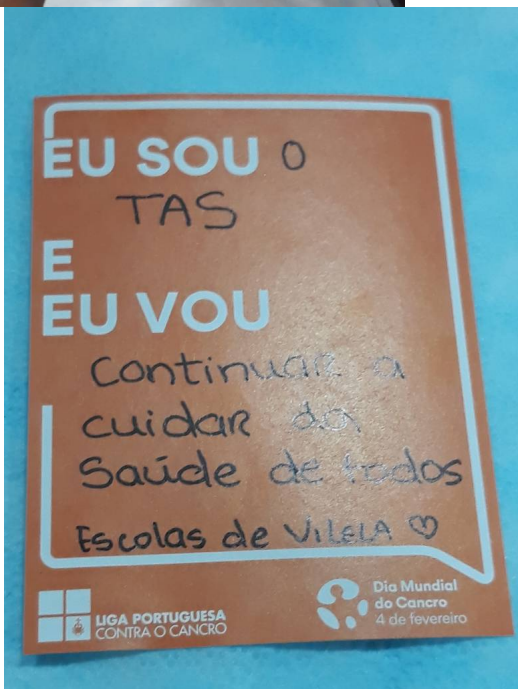 EU SOU O
TAS
E
EU VOU
Continuar a
cuidar da
Saúde de todos
Escolas de VILELA ♡
LIGA PORTUGUESA
CONTRA O CANCRO
Dia Mundial
do Cancro
4 de fevereiro